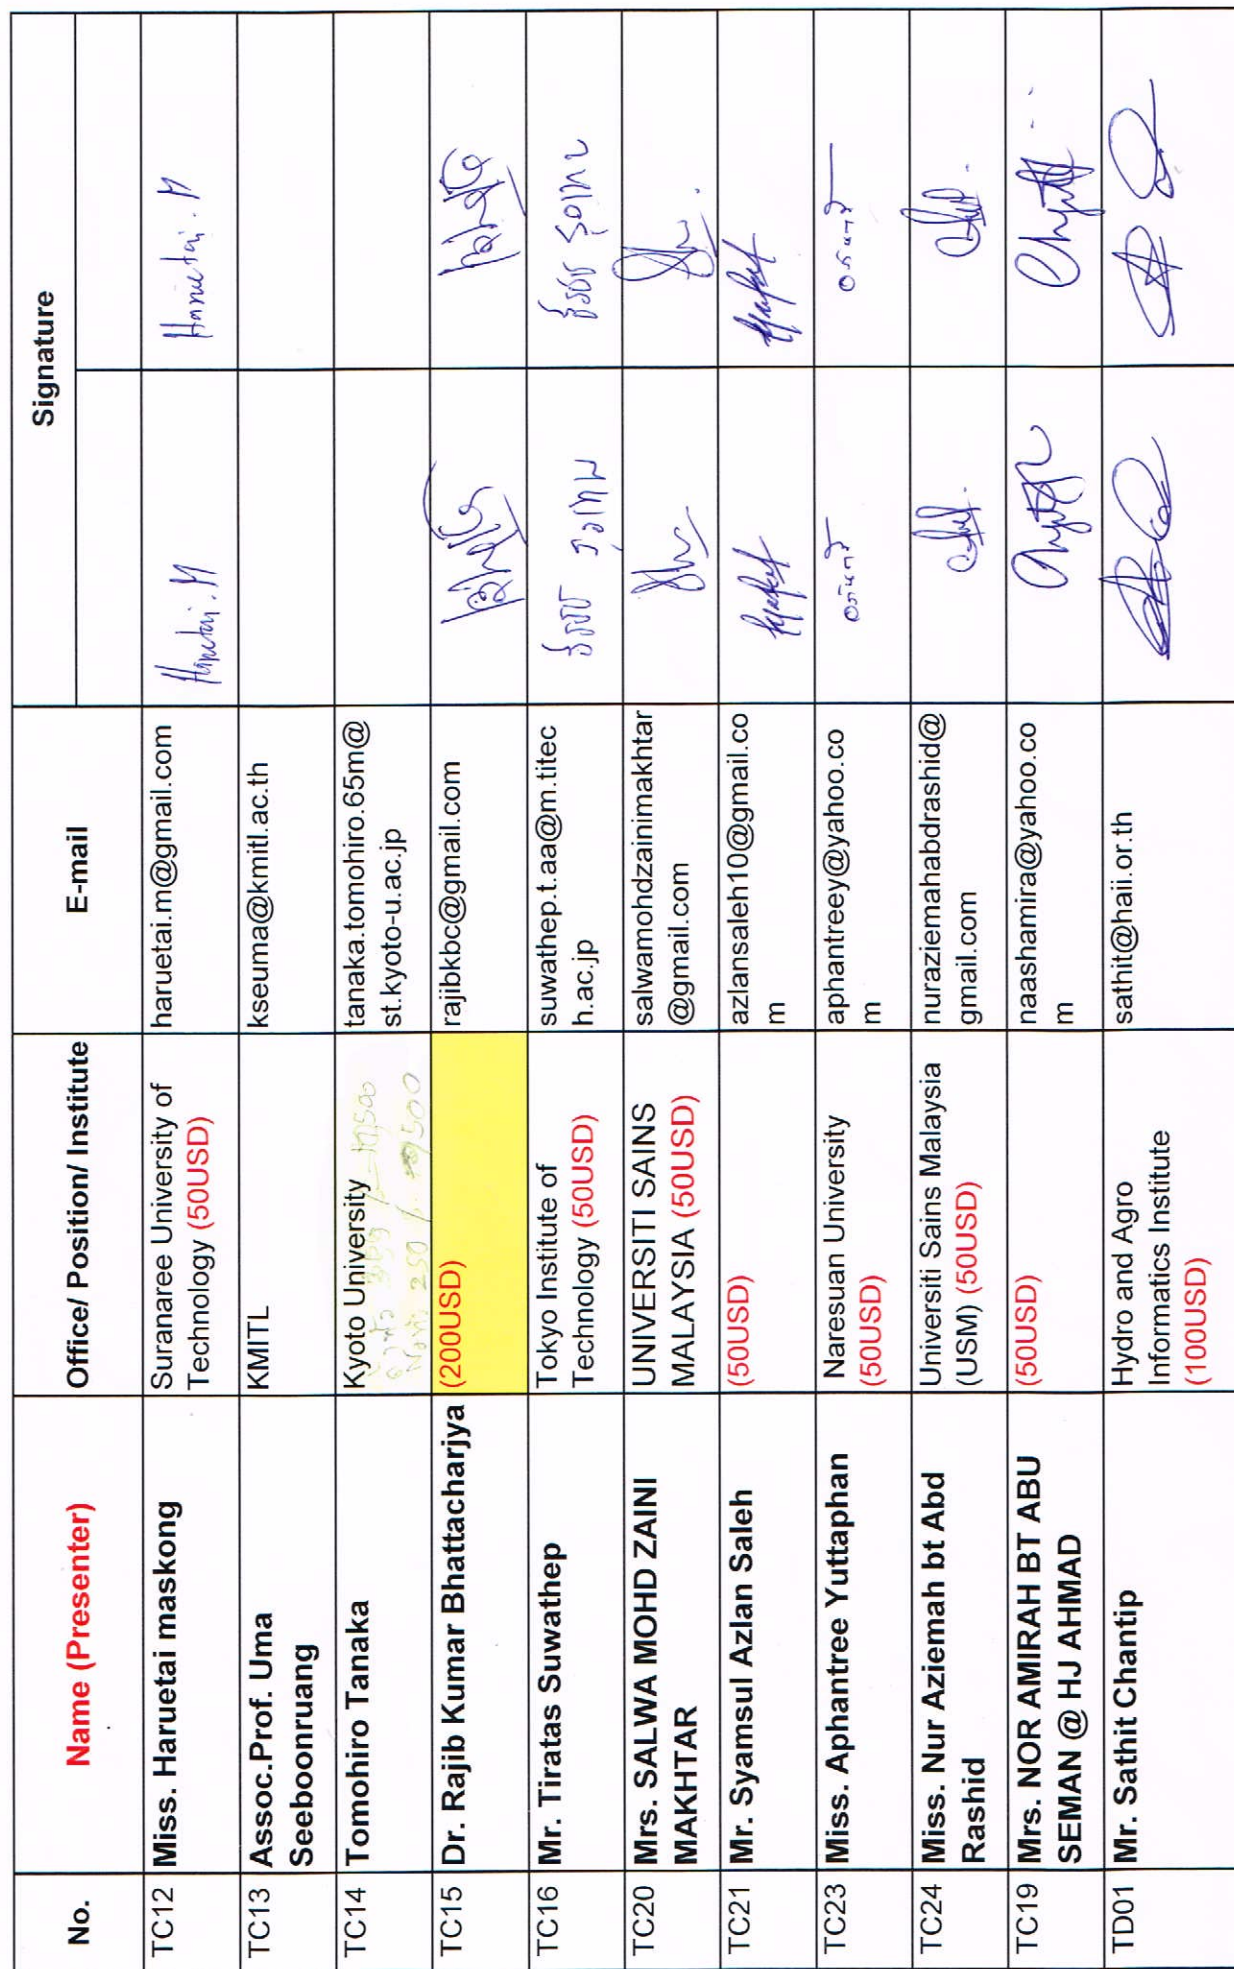 No.
Name (Presenter)
Office/ Position/ Institute
E-mail
Signature
TC12
Miss. Haruetai maskong
Suranaree University of
Technology (50USD)
haruetai.m@gmail.com
Haruetai. M
Haruetai. M
TC13
Assoc.Prof. Uma
Seeboonruang
KMITL
kseuma@kmitl.ac.th
TC14
Tomohiro Tanaka
Kyoto University
tanaka.tomohiro.65m@
st.kyoto-u.ac.jp
TC15
Dr. Rajib Kumar Bhattacharjya
(200USD)
rajibkbc@gmail.com
TC16
Mr. Tiratas Suwathep
Tokyo Institute of
Technology (50USD)
suwathep.t.aa@m.titec
h.ac.jp
TC20
Mrs. SALWA MOHD ZAINI
MAKHTAR
UNIVERSITI SAINS
MALAYSIA (50USD)
salwamohdzainimakhtar
@gmail.com
TC21
Mr. Syamsul Azlan Saleh
(50USD)
azlansaleh10@gmail.co
m
TC23
Miss. Aphantree Yuttaphan
Naresuan University
(50USD)
aphantreey@yahoo.co
m
TC24
Miss. Nur Aziemah bt Abd
Rashid
Universiti Sains Malaysia
(USM) (50USD)
nuraziemahabdrashid@
gmail.com
TC19
Mrs. NOR AMIRAH BT ABU
SEMAN @ HJ AHMAD
(50USD)
naashamira@yahoo.co
m
TD01
Mr. Sathit Chantip
Hydro and Agro
Informatics Institute
(100USD)
sathit@haii.or.th